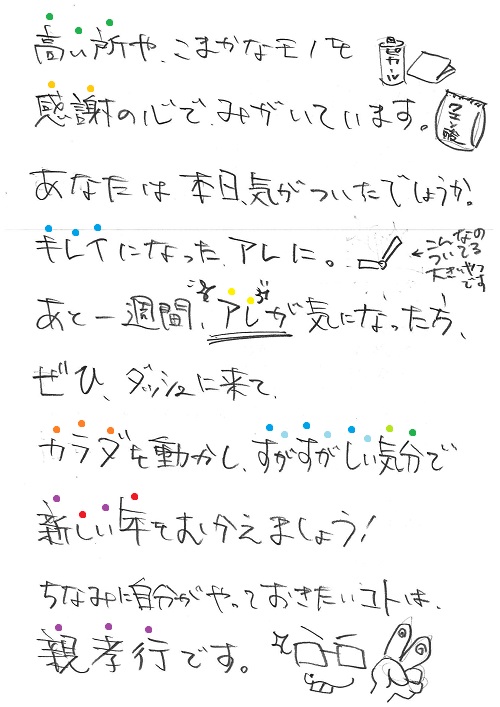 高い所や、こまかなモノを
感謝の心で、みがいています。
あなたは本日、気がついたでしょうか。
キレイになった、アレに。
←こんなの
ついてる
大きいやつ
です
あと一週間、アレが気になったら、
ぜひ、ダッシュに来て、
カラダを動かし、すがすがしい気分で
新しい年をむかえましょう!
ちなみに自分がやっておきたいコトは、
親孝行です。